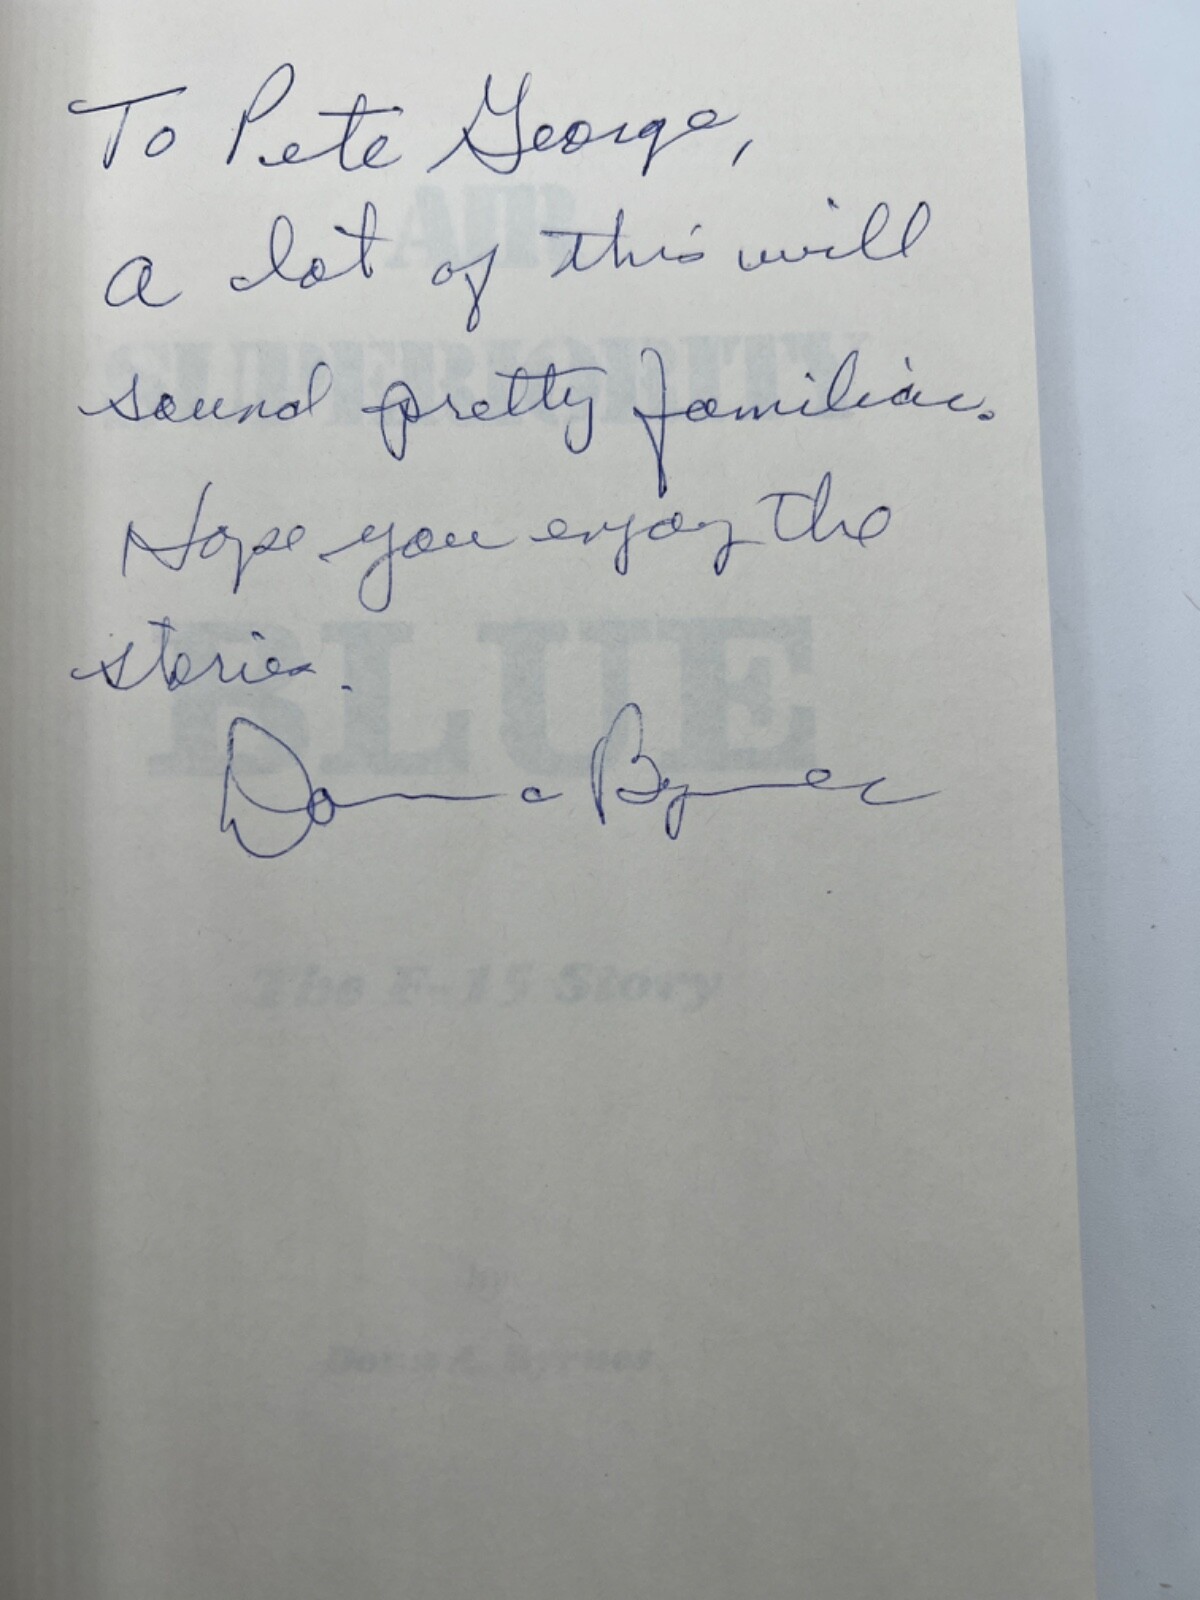 To Pete George,
a lot of this will
sound pretty familiar.
Hope you enjoy the
stories.
Donn Byrnes
AIR
SUPERIORITY
BLUE
The F-15 Story
by
Donn A. Byrnes